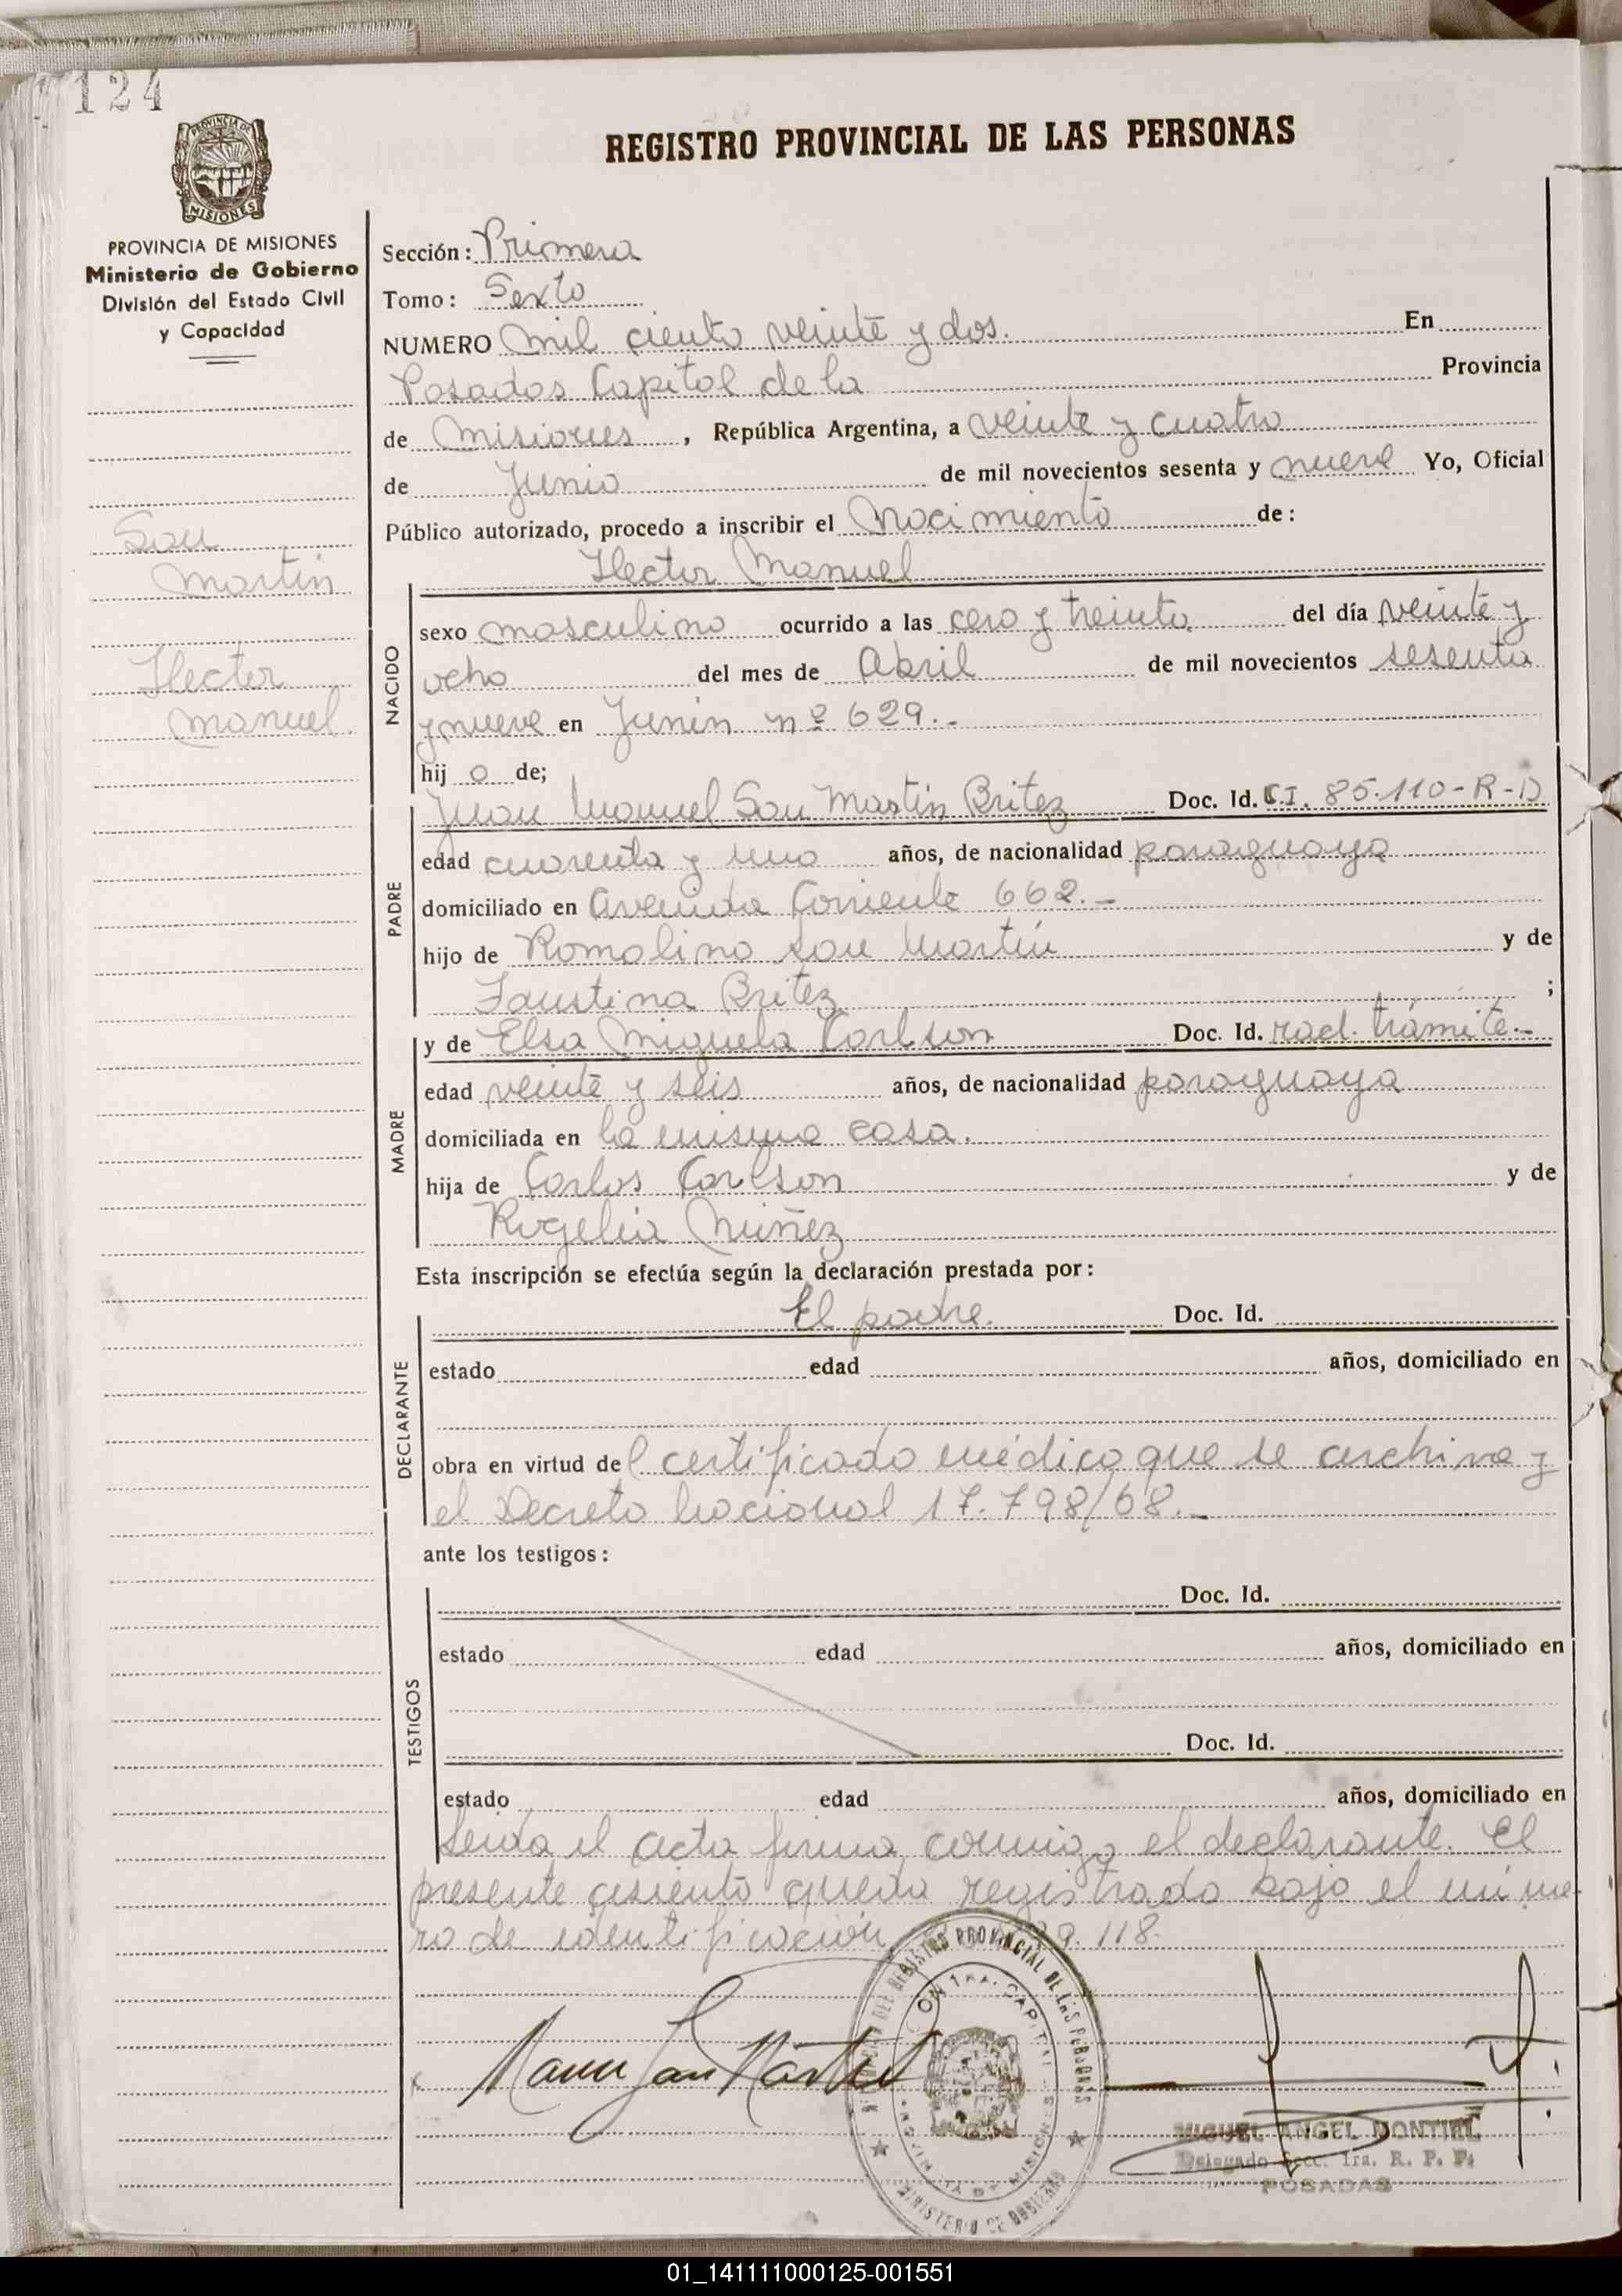 124
REGISTRO PROVINCIAL DE LAS PERSONAS
PROVINCIA DE
MISIONES
PROVINCIA DE MISIONES
Ministerio de Gobierno
División del Estado Civil
y Capacidad
San
Martin
Hector
Manuel.
Sección: Primera
Tomo: Sexto
NUMERO mil ciento veinte y dos. En
Posadas Capital de la Provincia
de Misiones, República Argentina, a veinte y cuatro
de Junio de mil novecientos sesenta y nueve Yo, Oficial
Público autorizado, procedo a inscribir el Nacimiento de:
Hector Manuel
NACIDO
sexo masculino ocurrido a las cero y treinta del día veinte y
ocho del mes de Abril de mil novecientos sesenta
y nueve en Junin nº 629.-
hij o de;
PADRE
Juan Manuel San Martin Britez Doc. Id. C.I. 85.110-R-D
edad cuarenta y uno años, de nacionalidad paraguaya
domiciliado en Avenida Corriente 662.-
hijo de Romalino San Martín y de
Faustina Britez ;
MADRE
y de Elsa Miguela Carlson Doc. Id. rad. trámite.-
edad veinte y seis años, de nacionalidad paraguaya
domiciliada en la misma casa.
hija de Carlos Carlson y de
Rogelia Núñez
Esta inscripción se efectúa según la declaración prestada por:
DECLARANTE
El padre. Doc. Id.
estado edad años, domiciliado en
obra en virtud del certificado médico que se archiva y
el Decreto Nacional 17.798/68.-
ante los testigos:
TESTIGOS
Doc. Id.
estado edad años, domiciliado en
Doc. Id.
estado edad años, domiciliado en
Leida el acta firma conmigo el declarante. El
presente asiento queda registrado bajo el núme-
ro de identificación 9.118.
Manu San Martin
REGISTRO PROVINCIAL DE LAS PERSONAS
1ra. CAPITAL
PROVINCIA DE MISIONES
MINISTERIO DE GOBIERNO
MIGUEL ANGEL MONTIEL
Delegado Secc. 1ra. R. P. P.
POSADAS
01_141111000125-001551